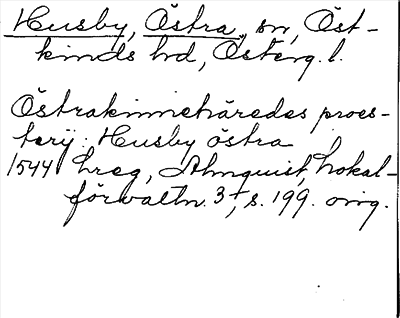 Husby, Östra, sn, Öst-
kinds hd, Österg. l.
Östrakinnehäredes proes-
terij: Husby östra
1544 hreg, Almquist, Lokal-
förvaltn. 3, s. 199. orig.